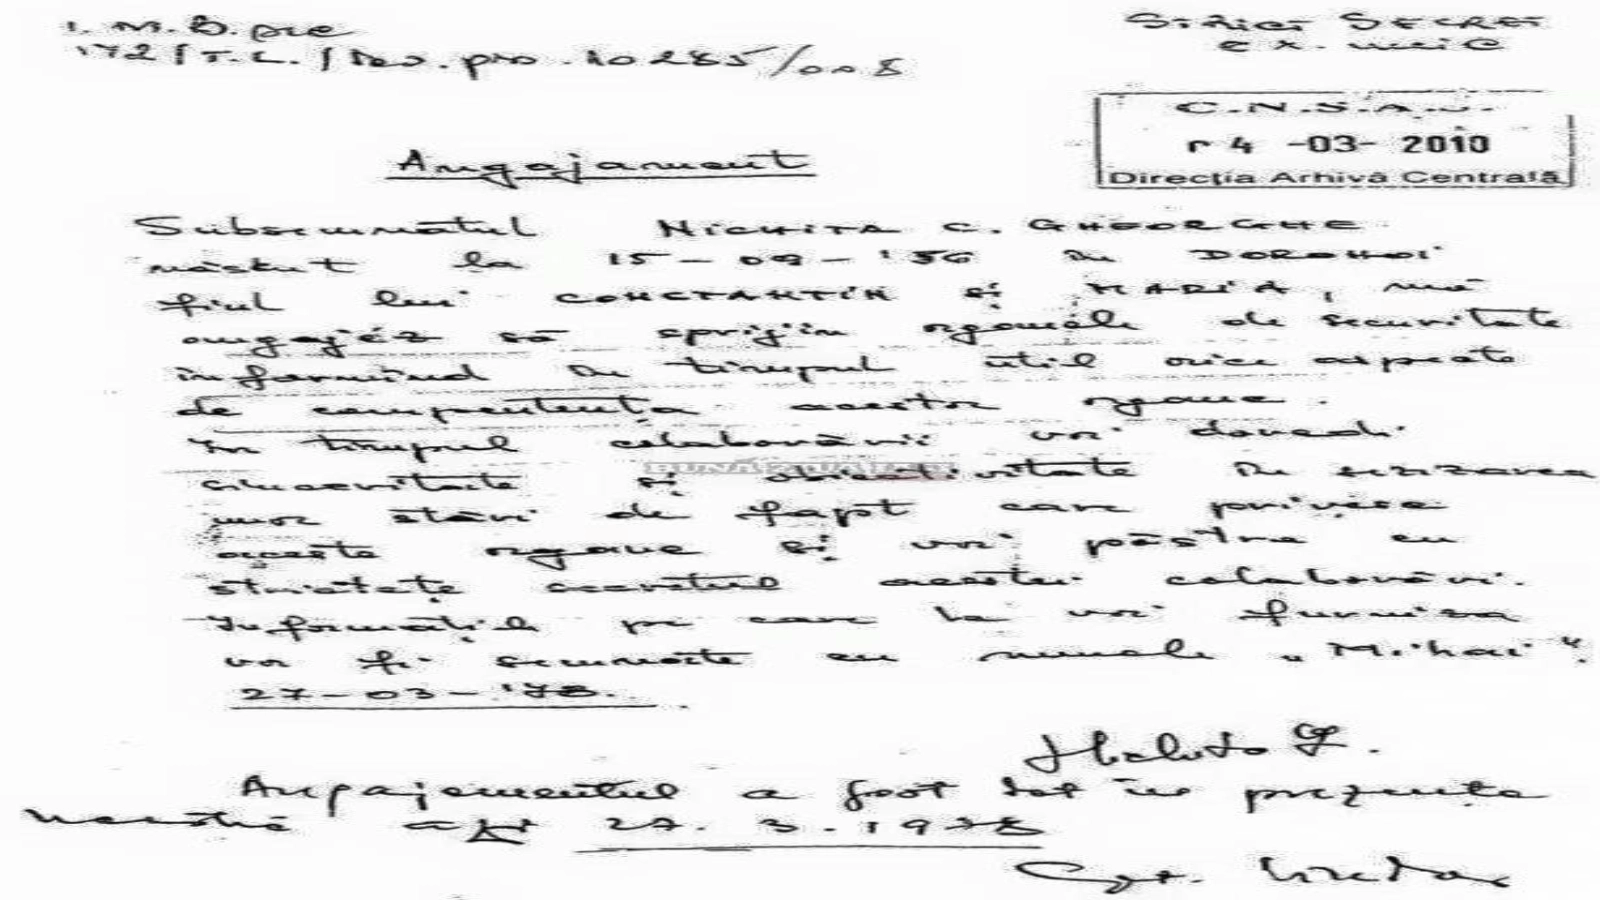 I.M.B. pre
172/T.L./ Nev. pro. 10285/008
STRICT SECRET
ex. unic
C.N.S.A.S.
r 4 -03- 2010
Direcția Arhivă Centrală
Angajament
Subsemnatul NICHITA C. GHEORGHE
născut la 15-09-'56 în DOROHOI
fiul lui CONSTANTIN și MARIA, mă
angajez să sprijin organele de securitate
informînd în timpul util orice aspecte
de competența acestor organe.
În timpul colaborării voi dovedi
sinceritate și obiectivitate în sezizarea
unor stări de fapt care privesc
aceste organe și voi păstra cu
strictețe secretul acestei colaborări.
Informațiile pe care le voi furniza
vor fi semnate cu numele „Mihai".
27-03-'78.
Angajamentul a fost dat în prezența
noastră azi 27.3.1978
Cpt.